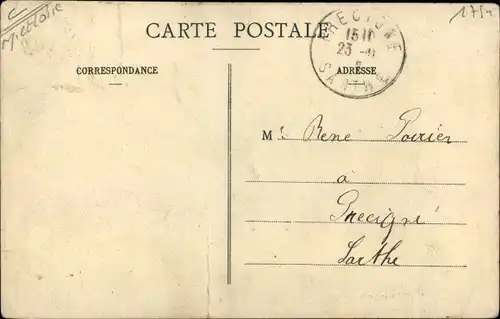 CARTE POSTALE
PRECIGNE
15 10
23
SARTHE
CORRESPONDANCE
ADRESSE
M. René Poirier
à
Precigné
Sarthe